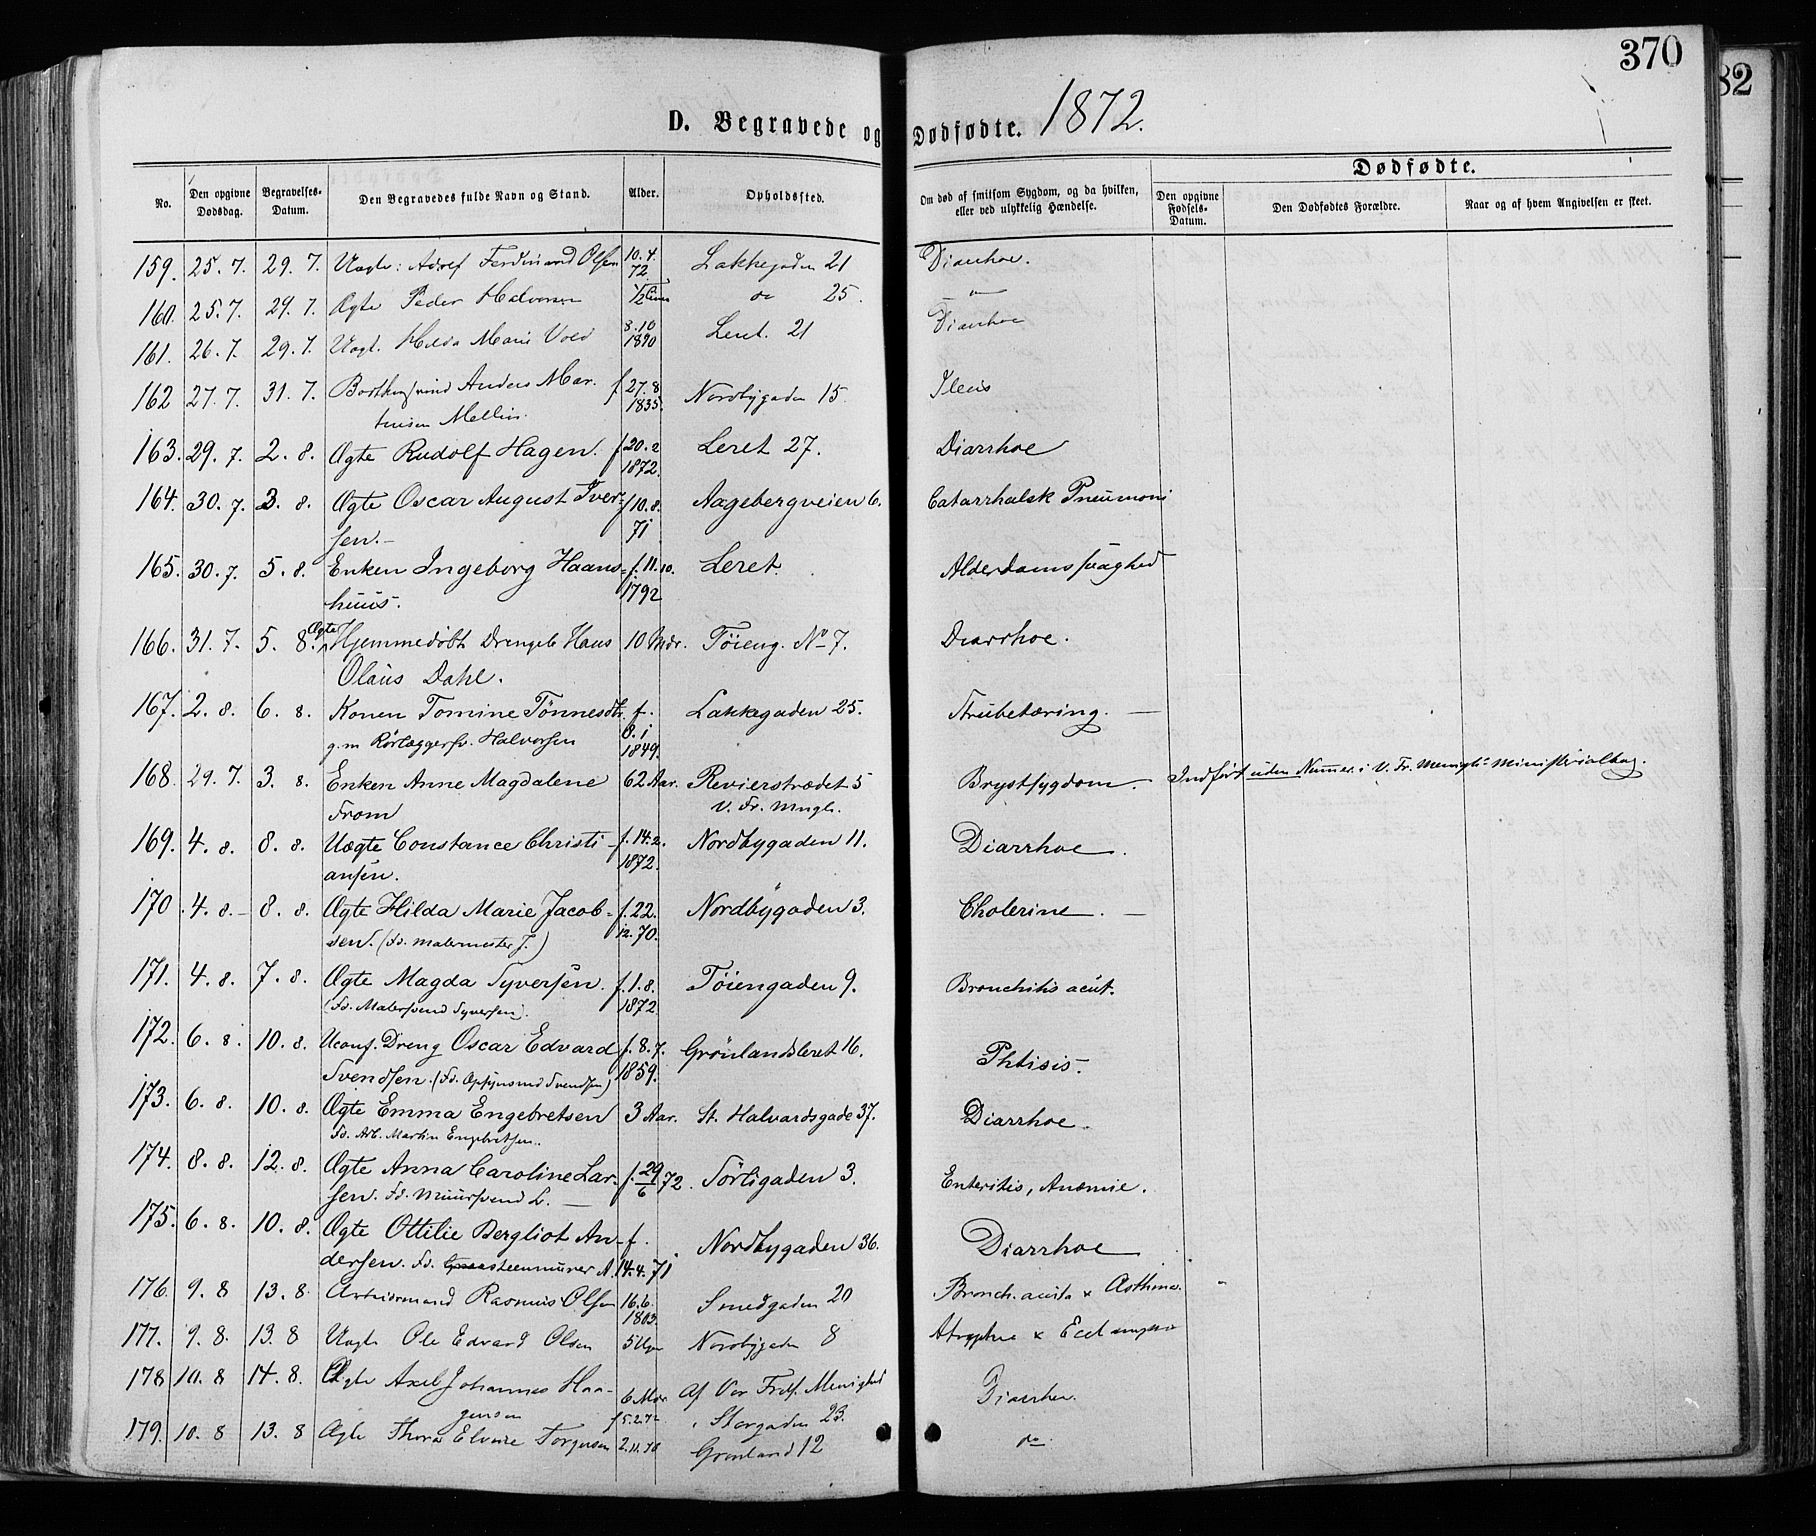 370
82
D. Begravede og Dødfødte. 1872.
Dødfødte.
No. Den opgivne Dødsdag. Begravelses-Datum. Den Begravedes fulde Navn og Stand. Alder. Opholdssted. Om død af smitsom Sygdom, og da hvilken, eller ved ulykkelig Hændelse. Den opgivne Fødsels-Datum. Den Dødfødtes Forældre. Naar og af hvem Angivelsen er skeet.
159. 25. 7. 29. 7. Uægte: Adolf Ferdinand Olsen 10.4. Lakkegaden 21 Diarrhoe.
72.
160. 25. 7. 29. 7. Ægte Peder Halvorsen 1/2 do 25. "
161. 26. 7. 29. 7. Uægt. Hilda Marie Vold 8.10 Leret. 21 Diarrhoe
1870
162 27. 7. 31. 7. Anders Mar- f 27.8 Nordbygaden 15. Ileus
tinsen Mellin. 1835.
163. 29. 7. 2. 8. Ægte Rudolf Hagen. f 20.2 Leret 27. Diarrhoe
1872.
164. 30. 7. 3. 8. Ægte Oscar August Iver- f 10.8. Aagebergveien 6. Catarrhalsk Pneumoni
sen.- 71
165. 30. 7. 5. 8. Enken Ingeborg Haans- f. 11.10. Leret. Alderdomssvaghed
huus. 1792
166. 31. 7. 5. 8. Ægte Hjemmedøbt Drengeb. Hans 10 Mdr. Tøieng. No 7. Diarrhoe.
Olaus Dahl.
167. 2. 8. 6. 8. Konen Tomine Tønnesdtr. f. Lakkegaden 25. Strubetæring. —
g. m Rørlæggersv. Halvorsen 8. 1
1849.
168. 29. 7. 3. 8. Enken Anne Magdalene 62 Aar. Revierstrædet 5 Brystsygdom. Indført uden Nummer i V. Fr. Menighs Ministerialbog.
From V. Fr. Mngh.
169. 4. 8. 8. 8. Uægte Constance Christi- f. 14.2. Nordbygaden 11. Diarrhoe.
ansen. 1872.
170. 4. 8. 8. 8. Ægte Hilda Marie Jacob- f. 22. Nordbygaden 3. Cholerine. —
sen. (Fd. Malermester J.) 12. 70.
171. 4. 8. 7. 8. Ægte Magda Syversen. f. 1. 8. Tøiengaden 9. Bronchitis acut.
(Fd. Malersvend Syversen). 1872
172. 6. 8. 10. 8. Uconf. Dreng Oscar Edvard f. 8. 7. Grønlandsleret 16. Phtisis.
Svendsen. (Fd. Svendsen) 1859.
173. 6. 8. 10. 8. Ægte Emma Engebretsen 3 Aar. St. Halvardsgade 37. Diarrhoe.
Fd. Arb. Martin Engebretsen.
174. 8. 8. 12. 8. Ægte Anna Caroline Lar- f. 29/6 72. Sørligaden 3. Enteritis, Anæmie.
sen. Fd. Muursvend L. —
175. 6. 8. 10. 8. Ægte Ottilie Bergliot An- f. Nordbygaden 36. Diarrhoe
dersen. Fd. steenmurer A. 14. 4. 71
176. 9. 8 13. 8. Arbeidsmand Rasmus Olsen 16.6. Smedgaden 20 Bronch. acuta & Asthma.
1803.
177. 9. 8. 13. 8 Uægte Ole Edvard Olsen 5 Uger Nordbygaden 8 Atrophie & Eclampsia
178 10. 8 14. 8. Ægte Axel Johannes Haa- 6 Mdr. Af Vor Frels. Menighed Diarrhoe.
gensen f 5.2.72 Storgaden 23.
179. 10. 8 13. 8 Ægte Thora Elvine Torgersen 2.11.70 Grønland 12 do